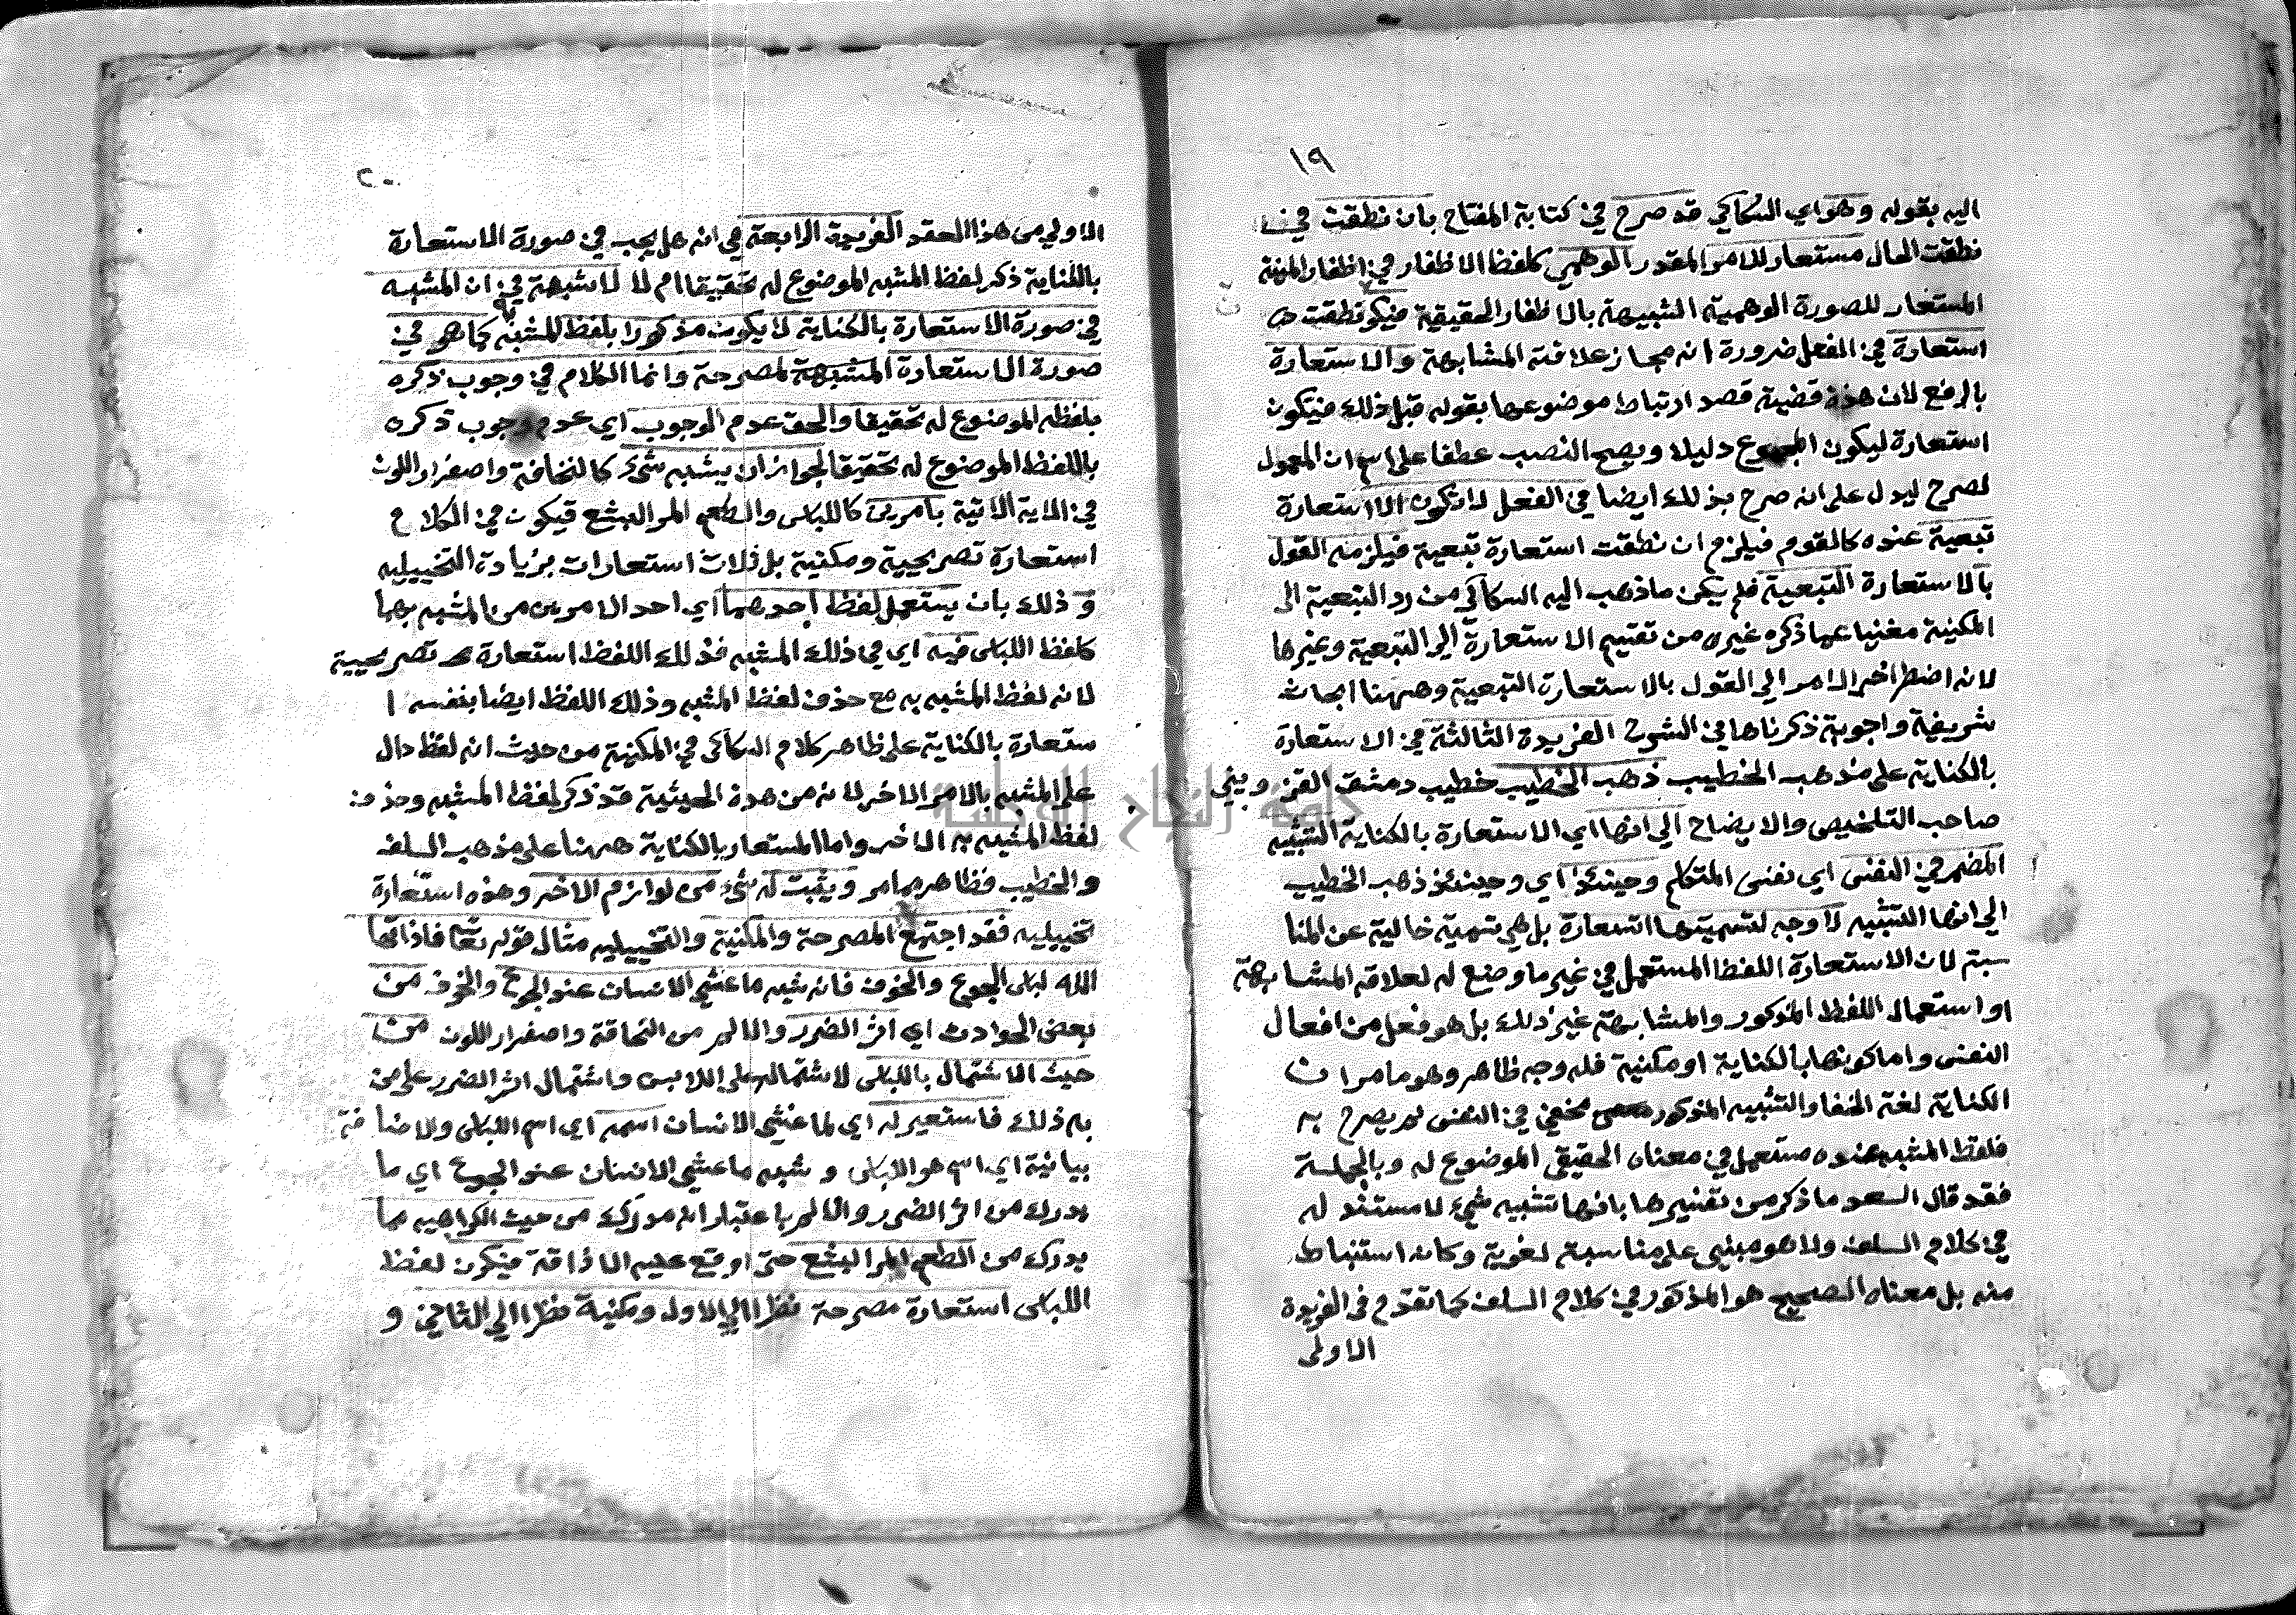 ١٩
اليه بقوله وهو اي السكاكي قد صرح في كتابة المفتاح بان نطقت في
نطقت الحال مستعار للامر المقدر الوهمي كلفظ الاظفار في اظفار المنية
المستعار للصورة الوهمية الشبيهة بالاظفار الحقيقية فيكو نطقت ح
استعارة في الفعل ضرورة انه مجاز علاقته المشابهة والاستعارة
بالرفع لان هذه قضية قصد ارتباط موضوعها بقوله قبل ذلك فيكون
استعارة ليكون المجموع دليلا ويصح النصب عطفا على اسم ان المعمول
لصرح ليدل على انه صرح بذلك ايضا في الفعل لا تكون الا استعارة
تبعية عنده كالقوم فيلزم ان نطقت استعارة تبعية فيلزمه القول
بالاستعارة التبعية فلم يكن ما ذهب اليه السكاكي من رد التبعية الى
المكنية مغنيا عما ذكره غيره من تقسيم الاستعارة الي التبعية وغيرها
لانه اضطر اخر الامر الي القول بالاستعارة التبعية وههنا ابحاث
شريفة واجوبة ذكرناها في الشرح الفريدة الثالثة في الاستعارة
بالكناية على مذهب الخطيب ذهب الخطيب خطيب دمشق القزويني
صاحب التلخيص والايضاح الي انها اي الاستعارة بالكناية التشبيه
المضمر في النفس اي نفس المتكلم وحينئذ اي وحينئذ ذهب الخطيب
الي انها التشبيه لا وجه لتسميتها استعارة بل هي تسمية خالية عن المنا
سبة لان الاستعارة اللفظ المستعمل في غير ما وضع له لعلاقة المشابهة
او استعمال اللفظ المذكور والمشابهة غير ذلك بل هو فعل من افعال
النفس واما كونها بالكناية او مكنية فله وجه ظاهر وهو ما مر ان
الكناية لغة الخفا والتشبيه المذكور مخفي في النفس لم يصرح به
فلفظ المشبه عنده مستعمل في معناه الحقيقي الموضوع له وبالجملة
فقد قال السعد ما ذكر من تفسيرها بانها تشبيه شيء لا مستند له
في كلام السلف ولا هو مبني على مناسبة لغوية وكانه استنباط
منه بل معناه الصحيح هو المذكور في كلام السلف كما تقدم في الفريدة
الاولى
٢٠
الاولي من هذا العقد الفريدة الرابعة في انه هل يجب في صورة الاستعارة
بالكناية ذكر لفظ المشبه الموضوع له تحقيقا ام لا لا شبهة في ان المشبه
في صورة الاستعارة بالكناية لا يكون مذكورا بلفظ المشبه به كما هو في
صورة الاستعارة المشبهة لمصرحة وانما الكلام في وجوب ذكره
بلفظه الموضوع له تحقيقا والحق عدم الوجوب اي عدم وجوب ذكره
باللفظ الموضوع له تحقيقا لجواز ان يشبه شيء كالنحافة واصفرار اللون
في الاية الاتية بامرين كاللباس والطعم المر البشع فيكون في الكلام
استعارة تصريحية ومكنية بل ثلاث استعارات بزيادة التخييليه
وذلك بان يستعمل لفظ احدهما اي احد الامرين من المشبه بهما
كلفظ اللباس فيه اي في ذلك المشبه فذلك اللفظ استعارة تصريحيية
لانه لفظ المشبه به مع حذف لفظ المشبه وذلك اللفظ ايضا بنفسه ا
ستعارة بالكناية على ظاهر كلام السكاكي في المكنية من حيث انه لفظ دال
على المشبه بالامر الاخر لانه من هذه الحيثية قد ذكر لفظ المشبه وحذف
لفظ المشبه به الاخر واما المستعار بالكناية ههنا على مذهب السلف
والخطيب فظاهر مما مر ويثبت له شيء من لوازم الاخر وهذه استعارة
تخييليه فقد اجتمع المصرحة والمكنية والتخييليه مثال قوله تعالى فاذاقها
الله لباس الجوع والخوف فانه شبه ما غشي الانسان عند الجوع والخوف من
بعض الحوادث اي اثر الضرر والالم من النحافة واصفرار اللون من
حيث الاشتمال باللباس لاشتماله على اللابس واشتمال اثر الضرر على من
به ذلك فاستعير له اي لما غشي الانسان اسمه اي اسم اللباس والاضا فة
بيانية اي اسم هو اللباس و شبه ما غشي الانسان عند الجوع اي ما
يدرك من اثر الضرر والالم باعتبار انه مدرك من حيث الكراهية مما
يدرك من الطعم المر البشع حتى اوقع عليه الاذاقة فيكون لفظ
اللباس استعارة مصرحة نظرا الي الاول ومكنية نظرا الي الثاني و
جامعة النجاح الوطنية